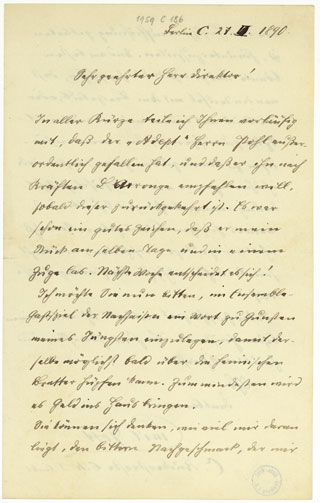 1959 C 186
Berlin C. 27 II. 1890.
Sehr geehrter Herr Direktor!
In aller Kürze teile ich Ihnen vorläufig
mit, daß der „Adept“ Herrn Pohl außer-
ordentlich gefallen hat, und daß er ihn nach
Kräften L'Arronge empfehlen will,
sobald dieser zurückgekehrt ist. Es war
schon ein gutes Zeichen, daß er mein
Stück am selben Tage und in einem
Zuge las. Nächste Woche entscheidet es sich!
Ich möchte Sie nun bitten, im Ensemble-
Gastspiel der Nachsaison ein Wort zu Gunsten
meines Jüngsten einzulegen, damit der-
selbe möglichst bald über die heimischen
Bretter hüpfen kann. Zum mindesten wird
es Geld ins Haus bringen.
Sie können sich denken, wie viel mir daran
liegt, den bittern Nachgeschmack, der mir